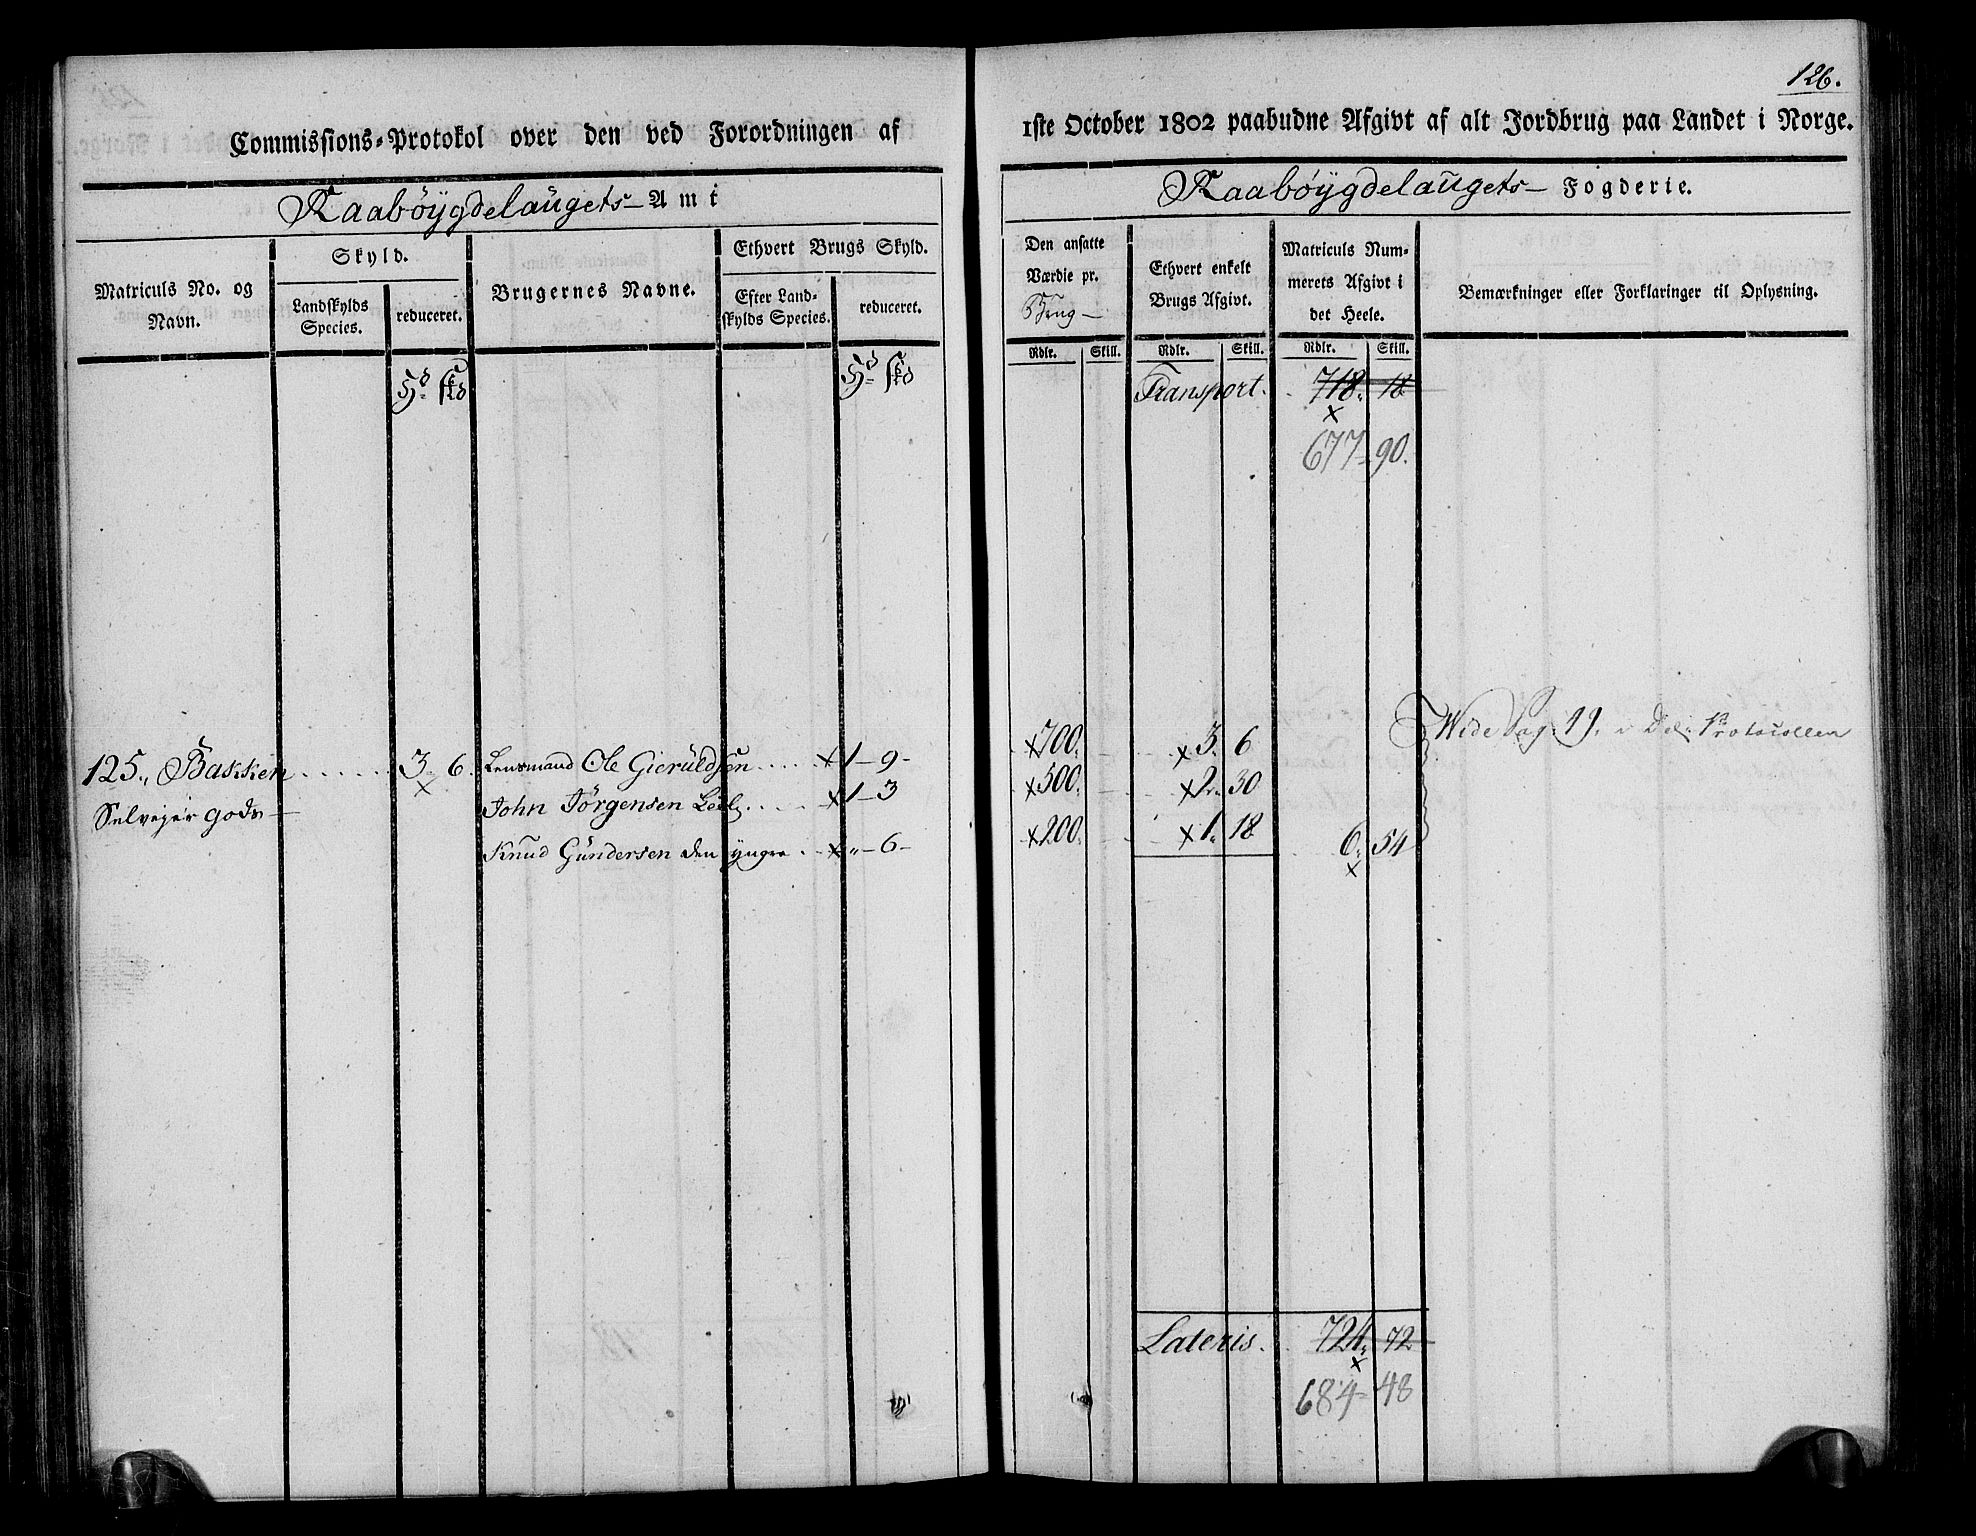 126.
Commissions-Protokol over den ved Forordningen af
1ste October 1802 paabudne Afgivt af alt Jordbrug paa Landet i Norge.
Raabøygdelaugets Amt
Raabøygdelaugets Fogderie.
Matriculs No. og Navn.
Skyld.
Landskylds Species.
reduceret.
Brugernes Navne.
Ethvert Brugs Skyld.
Efter Landskylds Species.
reduceret.
Den ansatte Værdie pr. Brug
Ethvert enkelt Brugs Afgivt.
Matriculs Nummerets Afgivt i det Heele.
Bemærkninger eller Forklaringer til Oplysning.
Rdlr. Skill. Rdlr. Skill. Rdlr. Skill.
Hd skd
Hd skd
Transport. 718. 18
x
677 - 90.
Wide Pag. 19. Protocollen
125., Bakken ..... 3. 6. Lensmand Ole Gieruldsen .... x 1 - 9 - x 700. x 3. 6
x
Selvejer gods — John Jörgensen .... x 1 - 3 x 500. x 2. 30
Knud Gundersen den yngre .. x " - 6 - x 200. x 1. 18 6. 54
x
Lateris. 724. 72
x
684 - 48